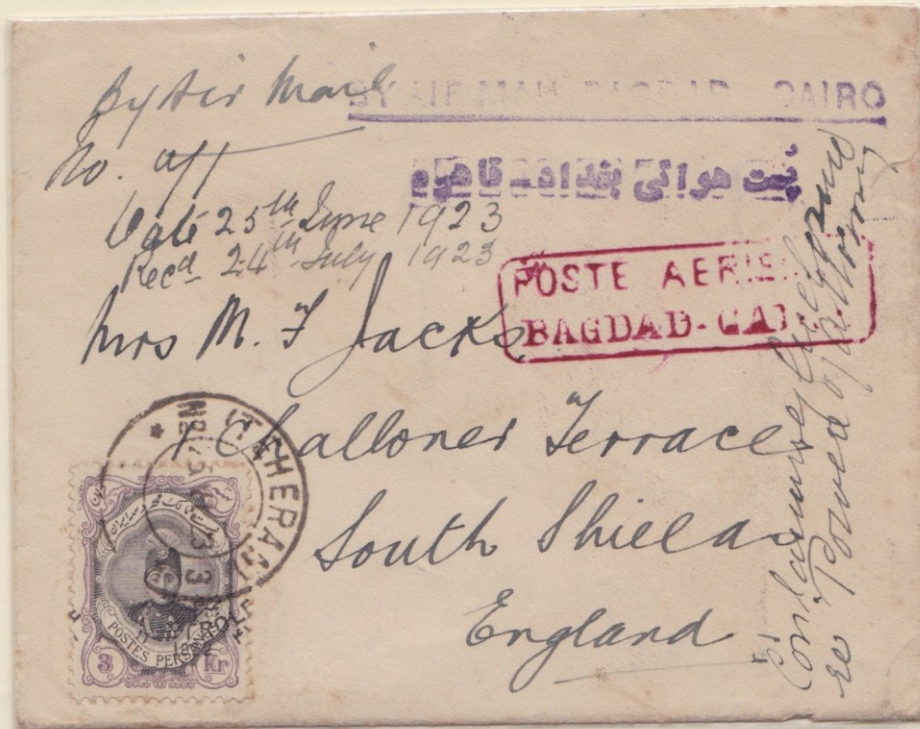 By Air Mail
BY AIR MAIL BAGDAD - CAIRO
No.
پست هوائی بغداد قاهره
Date 25th June 1923
Recd 24th July 1923
POSTE AERIE
BAGDAD-CAI
Mrs M. F Jacks
1 Challoner Terrace
South Shields
England
re Power of Attorney
THERAN
POSTES PERSANES
3 Kr